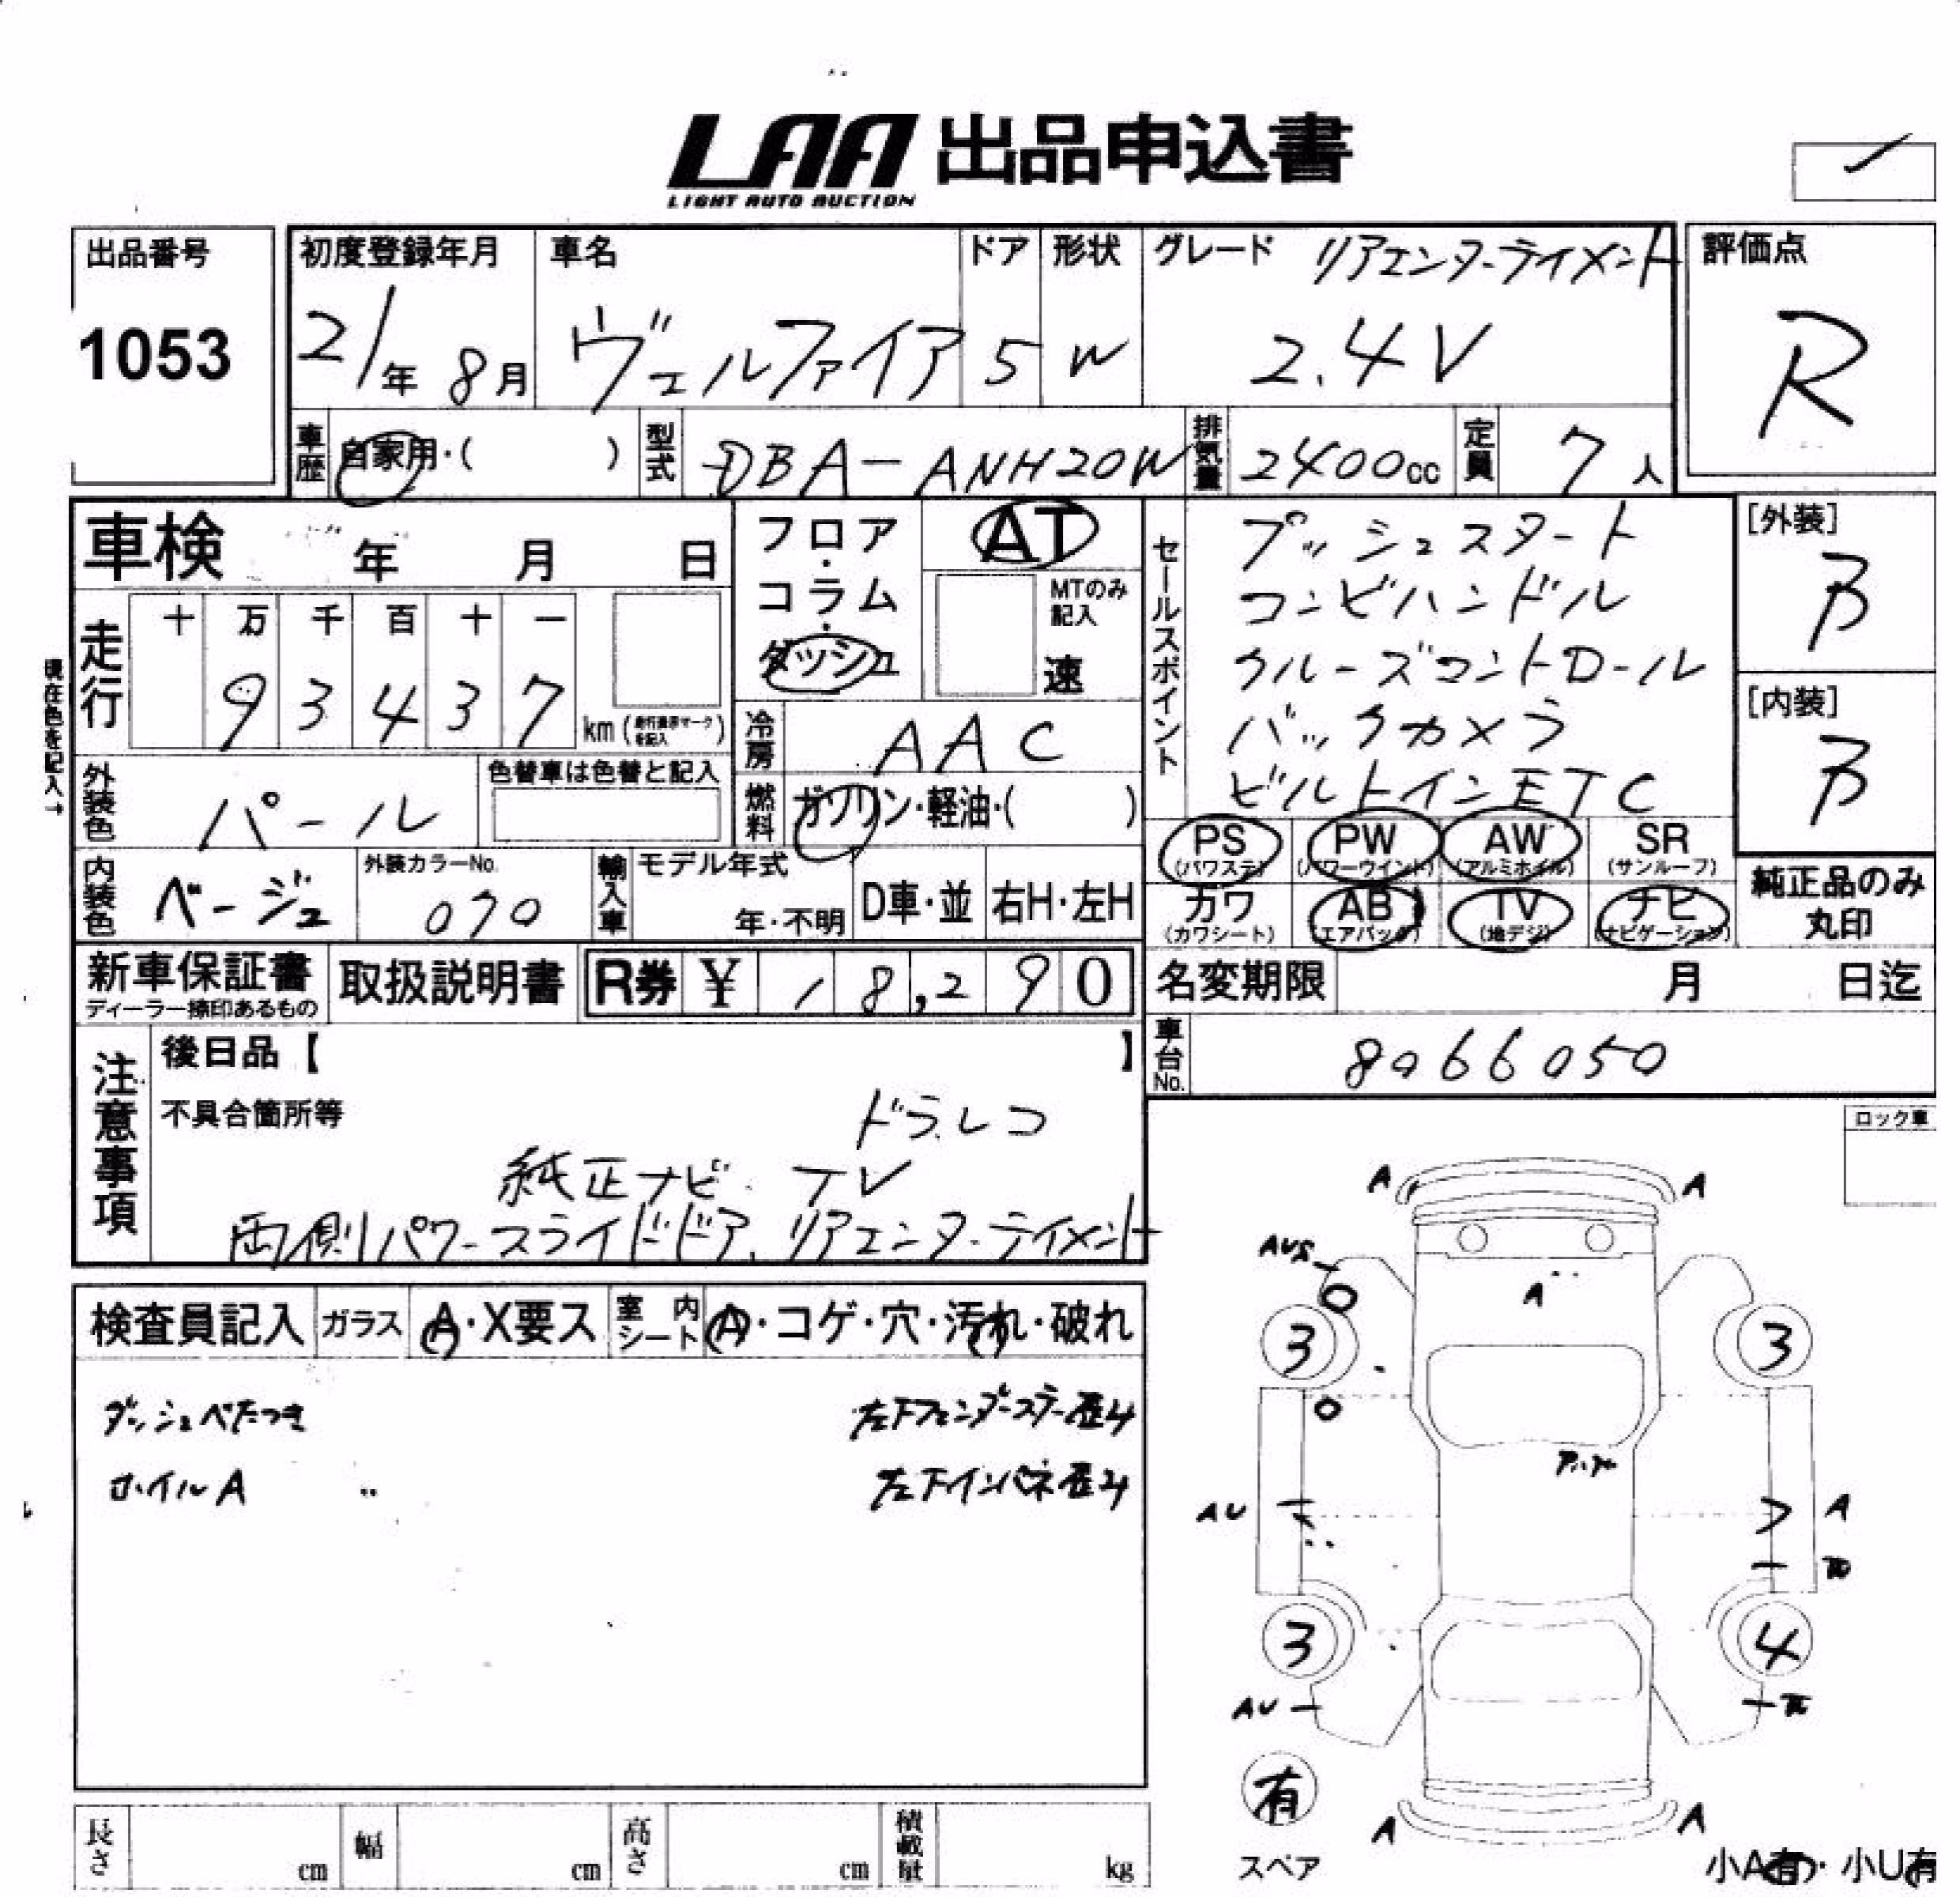 LAA 出品申込書
LIGHT AUTO AUCTION
出品番号
1053
初度登録年月
21年 8月
車名
ヴェルファイア
ドア
5
形状
W
グレード リアエンターテイメント
2.4V
評価点
R
車歴 自家用・( )
型式 DBA-ANH20W
排気量 2400cc
定員 7人
車検 年 月 日
フロア・コラム・ダッシュ
AT
MTのみ記入
速
走行
十 万 千 百 十 一
9 3 4 3 7
km
現在色を記入→
外装色 パール
色替車は色替と記入
冷房 AAC
燃料 ガソリン・軽油・( )
内装色 ベージュ
外装カラーNo.
070
輸入車
モデル年式
年・不明
D車・並
右H・左H
セールスポイント
プッシュスタート
コンビハンドル
クルーズコントロール
バックカメラ
ビルトインETC
[外装]
B
[内装]
B
PS (パワステ)
PW (パワーウインド)
AW (アルミホイル)
SR (サンルーフ)
カワ (カワシート)
AB (エアバッグ)
TV (地デジ)
ナビ (ナビゲーション)
純正品のみ
丸印
新車保証書
ディーラー捺印あるもの
取扱説明書
R券 ¥ 18,290
名変期限 月 日迄
車台No. 8066050
注意事項
後日品【 】
不具合箇所等
ドラレコ
純正ナビ TV
両側パワースライドドア、リアエンターテイメント
ロック車
検査員記入 ガラス A・X要ス 室内シート A・コゲ・穴・汚れ・破れ
ダッシュベたつき
左下フェンダーステー歪み
ホイルA
左下インパネ歪み
A A
AUS
A
3 3
AU A
3 4
AU
有
スペア
A A
小A有・小U有
長さ cm
幅 cm
高さ cm
積載量 kg